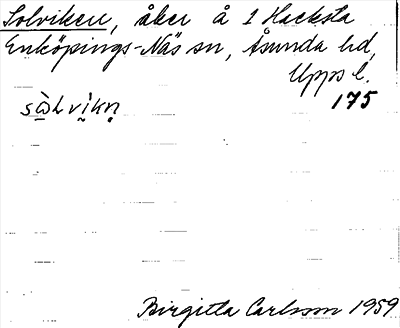 Solviken, åker å 1 Hacksta
Enköpings-Näs sn, Åsunda hd,
Upps l.
175
sὼLvi̬kn̥
Birgitta Carlsson 1959